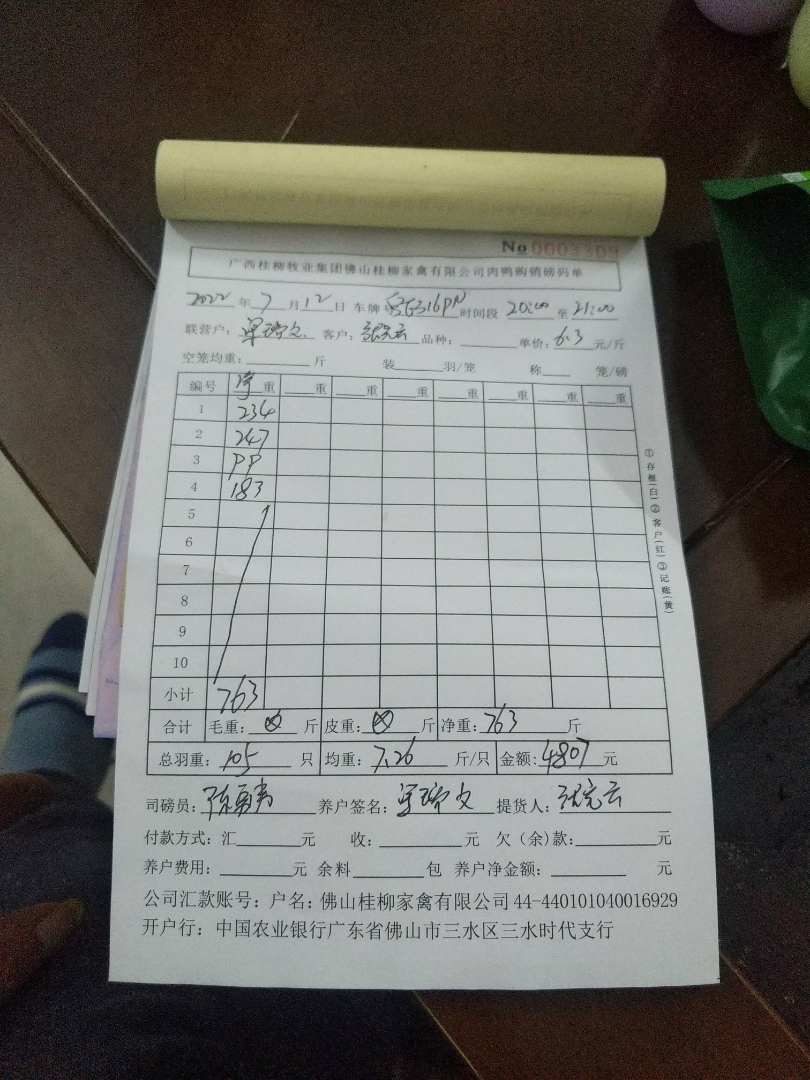 No 0003309
广西桂柳牧业集团佛山桂柳家禽有限公司肉鸭购销磅码单
2022年7月12日 车牌 粤E316PN 时间段 20:00 至 21:00
联营户: 客户: 品种: 单价: 6.3 元/斤
空笼均重: 斤 装 羽/笼 称 笼/磅
编号 净重 重 重 重 重 重 重 重
1 234
2 247
3 PP
4 183
5
6
7
8
9
10
小计 763
合计 毛重: 斤 皮重: 斤 净重: 763 斤
总羽重: 105 只 均重: 7.26 斤/只 金额: 4807 元
司磅员: 养户签名: 提货人:
付款方式: 汇 元 收: 元 欠(余)款: 元
养户费用: 元 余料 包 养户净金额: 元
公司汇款账号: 户名: 佛山桂柳家禽有限公司 44-440101040016929
开户行: 中国农业银行广东省佛山市三水区三水时代支行
①存根(白)②客户(红)③记账(黄)